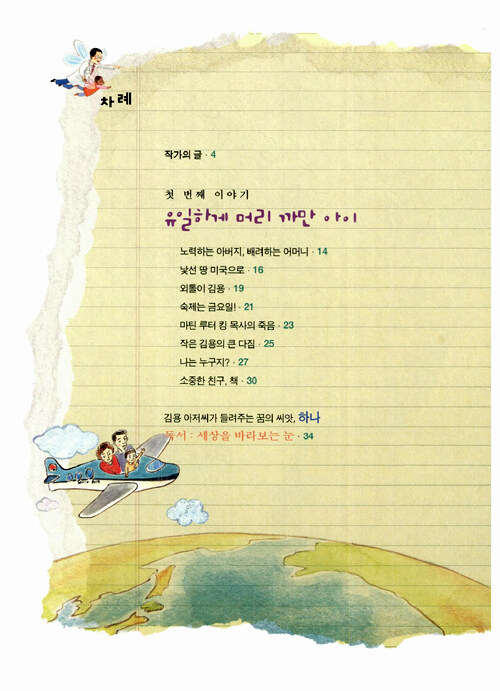 차례
작가의 글 · 4
첫 번째 이야기
유일하게 머리 까만 아이
노력하는 아버지, 배려하는 어머니 · 14
낯선 땅 미국으로 · 16
외톨이 김용 · 19
숙제는 금요일! · 21
마틴 루터 킹 목사의 죽음 · 23
작은 김용의 큰 다짐 · 25
나는 누구지? · 27
소중한 친구, 책 · 30
김용 아저씨가 들려주는 꿈의 씨앗, 하나
독서 : 세상을 바라보는 눈 · 34